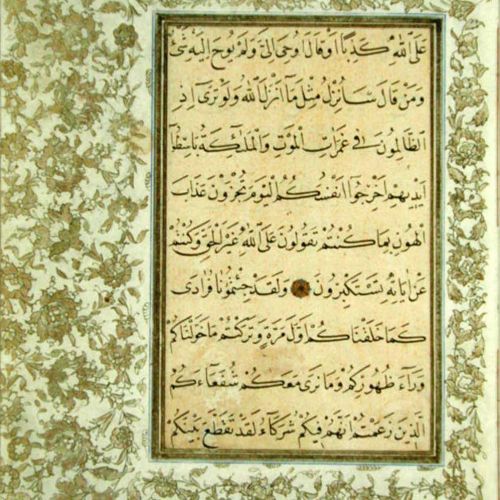 عَلَى اللهِ كَذِبًا اَوْ قَالَ اُوحِيَ اِلَيَّ وَلَمْ يُوحَ اِلَيْهِ شَيْءٌ
وَمَنْ قَالَ سَاُنْزِلُ مِثْلَ مَا اَنْزَلَ اللهُ وَلَوْ تَرٰى اِذِ
الظَّالِمُونَ فِي غَمَرَاتِ الْمَوْتِ وَالْمَلٰئِكَةُ بَاسِطُوا
اَيْدِيهِمْ اَخْرِجُوا اَنْفُسَكُمُ الْيَوْمَ تُجْزَوْنَ عَذَابَ
الْهُونِ بِمَا كُنْتُمْ تَقُولُونَ عَلَى اللهِ غَيْرَ الْحَقِّ وَكُنْتُمْ
عَنْ اٰيَاتِهِ تَسْتَكْبِرُونَ وَلَقَدْ جِئْتُمُونَا فُرَادٰى
كَمَا خَلَقْنَاكُمْ اَوَّلَ مَرَّةٍ وَتَرَكْتُمْ مَا خَوَّلْنَاكُمْ
وَرَاءَ ظُهُورِكُمْ وَمَا نَرٰى مَعَكُمْ شُفَعَاءَكُمُ
الَّذِينَ زَعَمْتُمْ اَنَّهُمْ فِيكُمْ شُرَكَاءُ لَقَدْ تَقَطَّعَ بَيْنَكُمْ